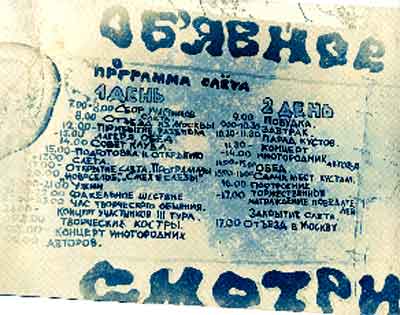 ОБ'ЯВНОЕ
ПРОГРАММА СЛЁТА
1 ДЕНЬ
7.00-8.00 СБОР УЧАСТНИКОВ
СЛЁТА
ОТЪЕЗД ИЗ МОСКВЫ
12.00 ПРИБЫТИЕ, РАЗБИВКА
ЛАГЕРЯ, ОБЕД
14.00 СОВЕТ КЛУБА.
15.00 ПОДГОТОВКА К ОТКРЫТИЮ
СЛЁТА.
ОТКРЫТИЕ СЛЁТА. ПРОГРАММЫ
"СМЕХ И СЛЁЗЫ"
УЖИН
ФАКЕЛЬНОЕ ШЕСТВИЕ
ЧАС ТВОРЧЕСКОГО ОБЩЕНИЯ.
КОНЦЕРТ УЧАСТНИКОВ III ТУРА.
ТВОРЧЕСКИЕ КОСТРЫ.
КОНЦЕРТ ИНОГОРОДНИХ
АВТОРОВ.
2 ДЕНЬ
9.00 ПОБУДКА.
ЗАВТРАК.
ПАРАД КУСТОВ.
КОНЦЕРТ
ИНОГОРОДНИХ АВТОРОВ
ОБЕД
СДАЧА МЕСТ КУСТАМ.
16.00 ПОСТРОЕНИЕ
-17.00 ТОРЖЕСТВЕННОЕ
НАГРАЖДЕНИЕ ПОБЕДИТЕЛЕЙ
ЗАКРЫТИЕ СЛЁТА
17.00 ОТЪЕЗД В МОСКВУ
СМОТРИ